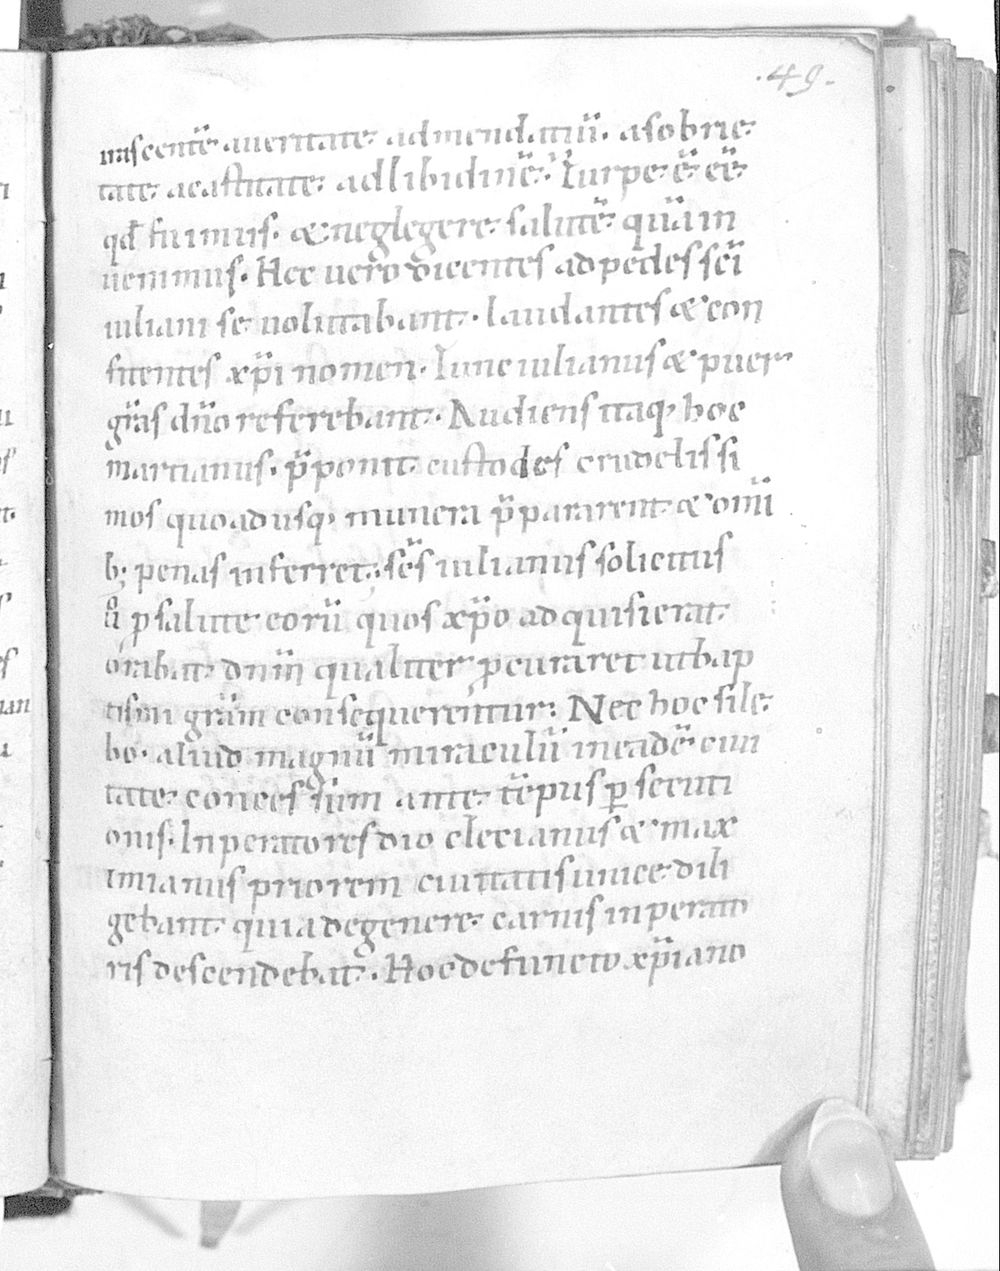 .49.
nascentē a ueritate ad mendatiū. a sobrie
tate a castitate ad libidinē. Turpe ē eē
qđ fuimus. & neglegere salutē quā in
uenimus. Hec uero dicentes ad pedes sc̄i
iuliani se uolutabant. laudantes & con
fitentes xp̄i nomen. Tunc iulianus & puer
gr̄as dn̄o referebant. Audiens itaq; hoc
martianus. p̄ponit custodes crudelissi
mos quo adusq; munera p̄pararent & om̄i
b; penas inferret. sc̄s iulianus solicitus
ů ꝓ salute eorū quos xp̄o adquisierat
orabat dn̄m qualiter ꝓcuraret ut bap
tismi gr̄am consequerentur. Nec hoc sile
bo. aliud magnū miraculū in eadē ciui
tate concessum ante tēpus ꝑsecuti
onis. Inperatores dioclecianus & max
imianus priorem ciuitatis unice dili
gebant quia de genere carnis inperato
ris descendebat. Hoc defuncto xp̄iano